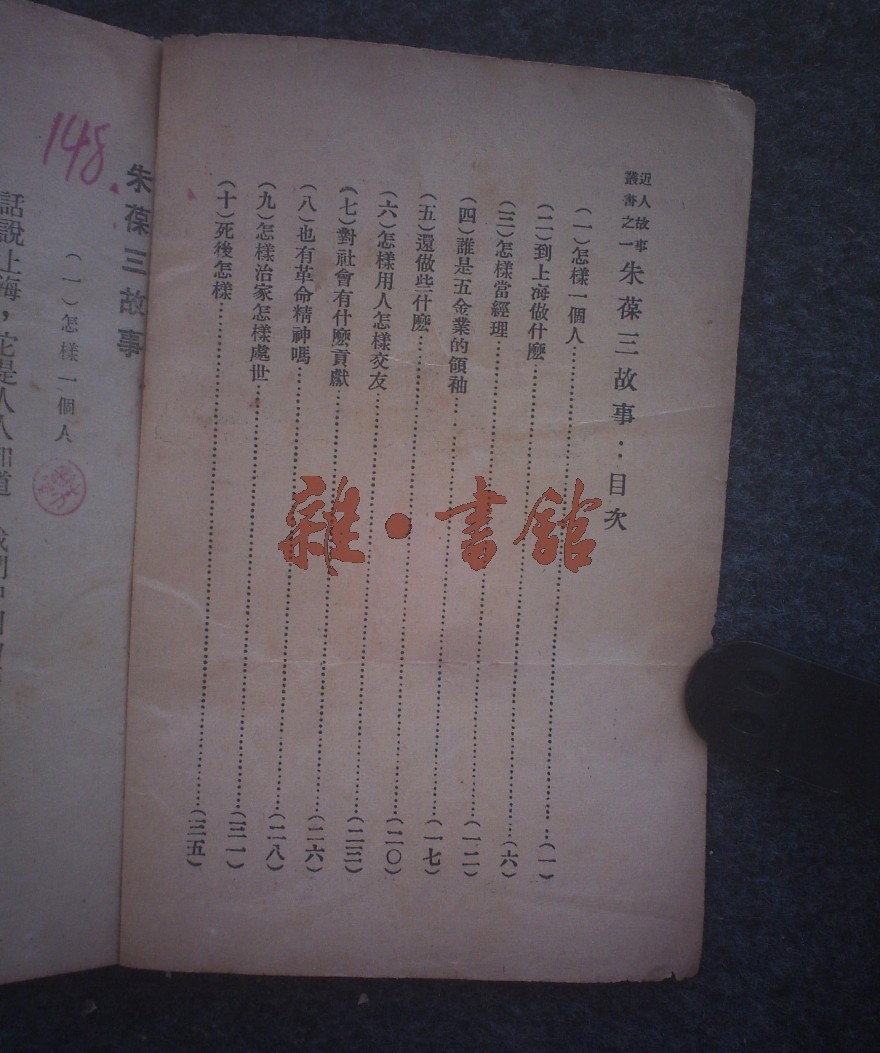 近人故事
叢書之一
朱葆三故事：目次
（一）怎樣一個人……（一）
（二）到上海做什麼……（六）
（三）怎樣當經理……（一二）
（四）誰是五金業的領袖……（一七）
（五）還做些什麼……（二〇）
（六）怎樣用人怎樣交友……（二三）
（七）對社會有什麼貢獻……（二六）
（八）也有革命精神嗎……（二八）
（九）怎樣治家怎樣處世……（三一）
（十）死後怎樣……（三五）
148.
朱葆三故事
（一）怎樣一個人
話說上海，它是人人知道
雜·書館